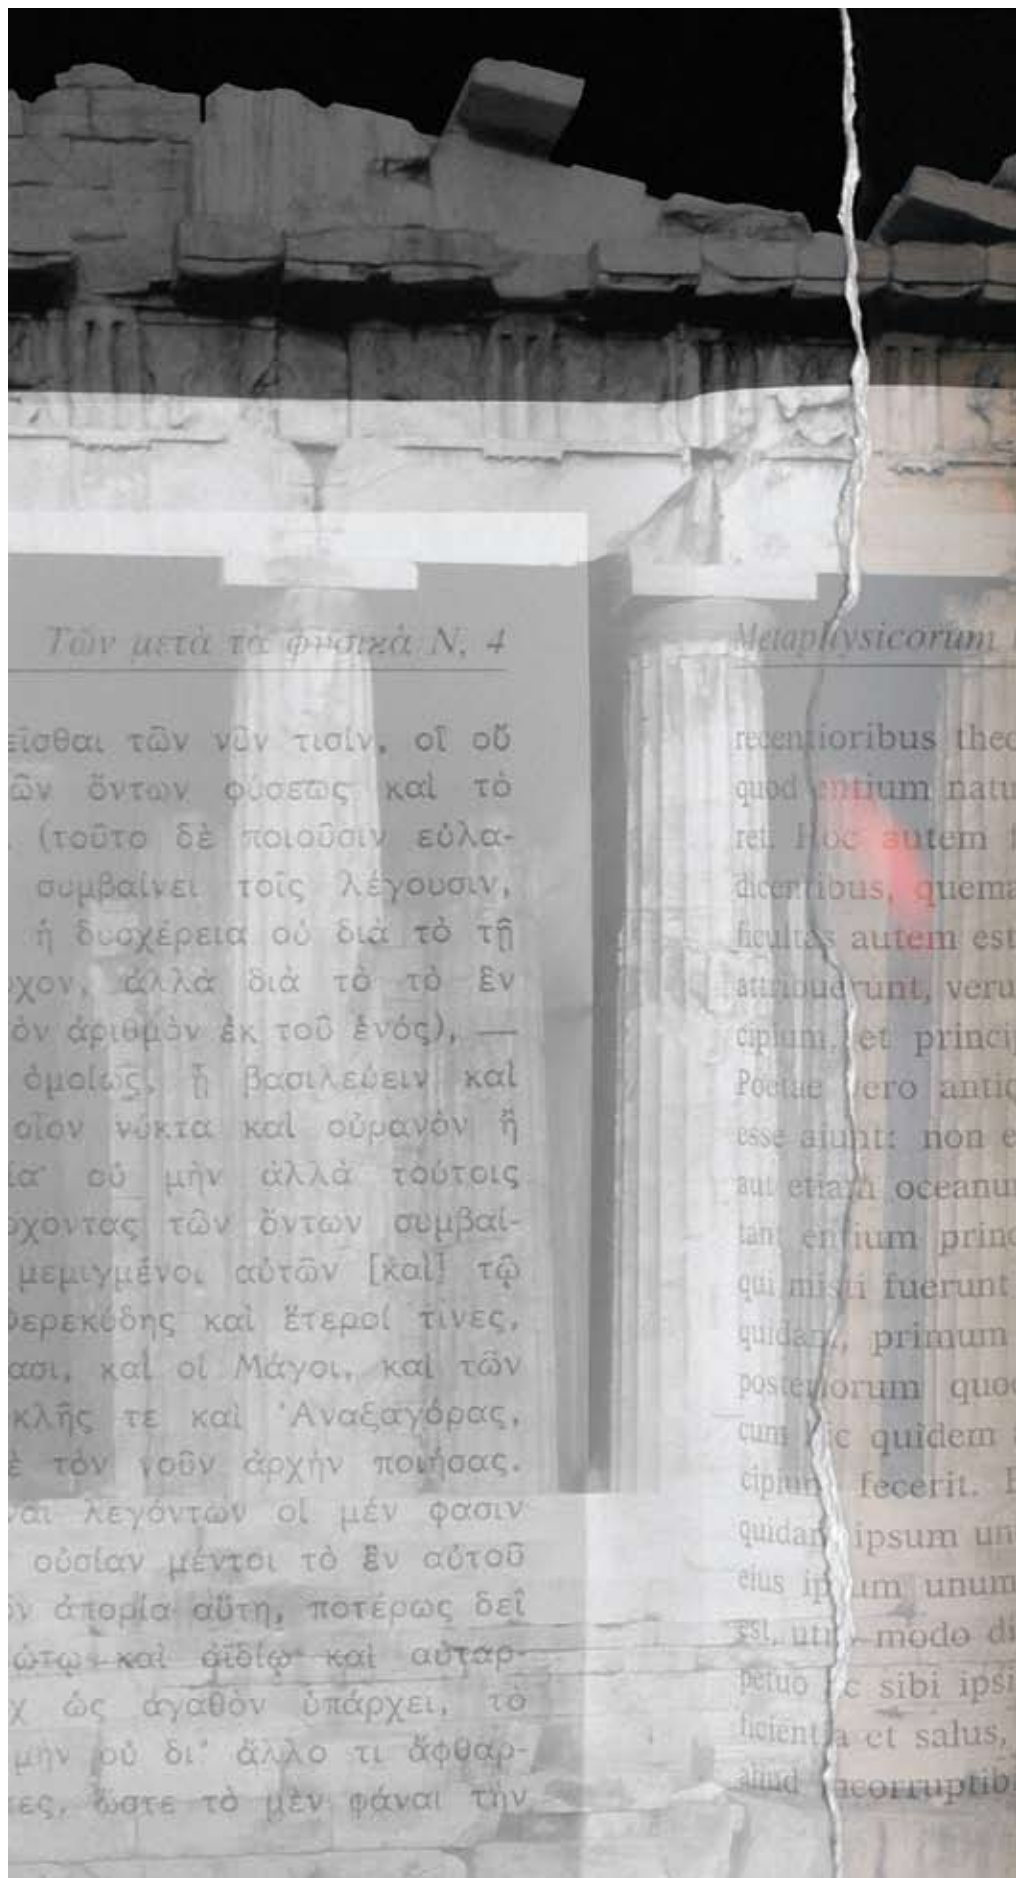 Τῶν μετὰ τὰ φυσικά N, 4
εῖσθαι τῶν νῦν τισίν, οἳ οὔ
ῶν ὄντων φύσεως καὶ τὸ
(τοῦτο δὲ ποιοῦσιν εὐλα-
συμβαίνει τοῖς λέγουσιν,
ἡ δυσχέρεια οὐ διὰ τὸ τῇ
χον, ἀλλὰ διὰ τὸ τὸ ἓν
ὸν ἀριθμὸν ἐκ τοῦ ἑνός), —
ὁμοίως, ᾗ βασιλεύειν καὶ
οἷον νύκτα καὶ οὐρανὸν ἢ
ία· οὐ μὴν ἀλλὰ τούτοις
χοντας τῶν ὄντων συμβαί-
μεμιγμένοι αὐτῶν [καὶ] τῷ
ερεκύδης καὶ ἕτεροί τινες,
ασι, καὶ οἱ Μάγοι, καὶ τῶν
κλῆς τε καὶ Ἀναξαγόρας,
ὲ τὸν νοῦν ἀρχὴν ποιήσας.
ναι λεγόντων οἱ μέν φασιν
οὐσίαν μέντοι τὸ ἓν αὐτοῦ
ἀπορία αὕτη, ποτέρως δεῖ
ώτῳ καὶ ἀϊδίῳ καὶ αὐταρ-
χ ὡς ἀγαθὸν ὑπάρχει, τὸ
μὴν οὐ δι' ἄλλο τι ἄφθαρ-
ες, ὥστε τὸ μὲν φάναι τὴν
Metaphysicorum
recentioribus theo
quod entium natu
ret. Hoc autem
dicentibus, quema
ficultas autem est
attribuerunt, veru
cipium, et princip
Poetae vero antiq
esse aiunt: non e
aut etiam oceanu
tant entium princ
qui misti fuerunt
quidam, primum
posteriorum quod
cum hic quidem
cipium fecerit. E
quidam ipsum un
eius ipsum unum
est, utro modo di
petuo ac sibi ipsi
ficientia et salus,
aliud incorruptibi